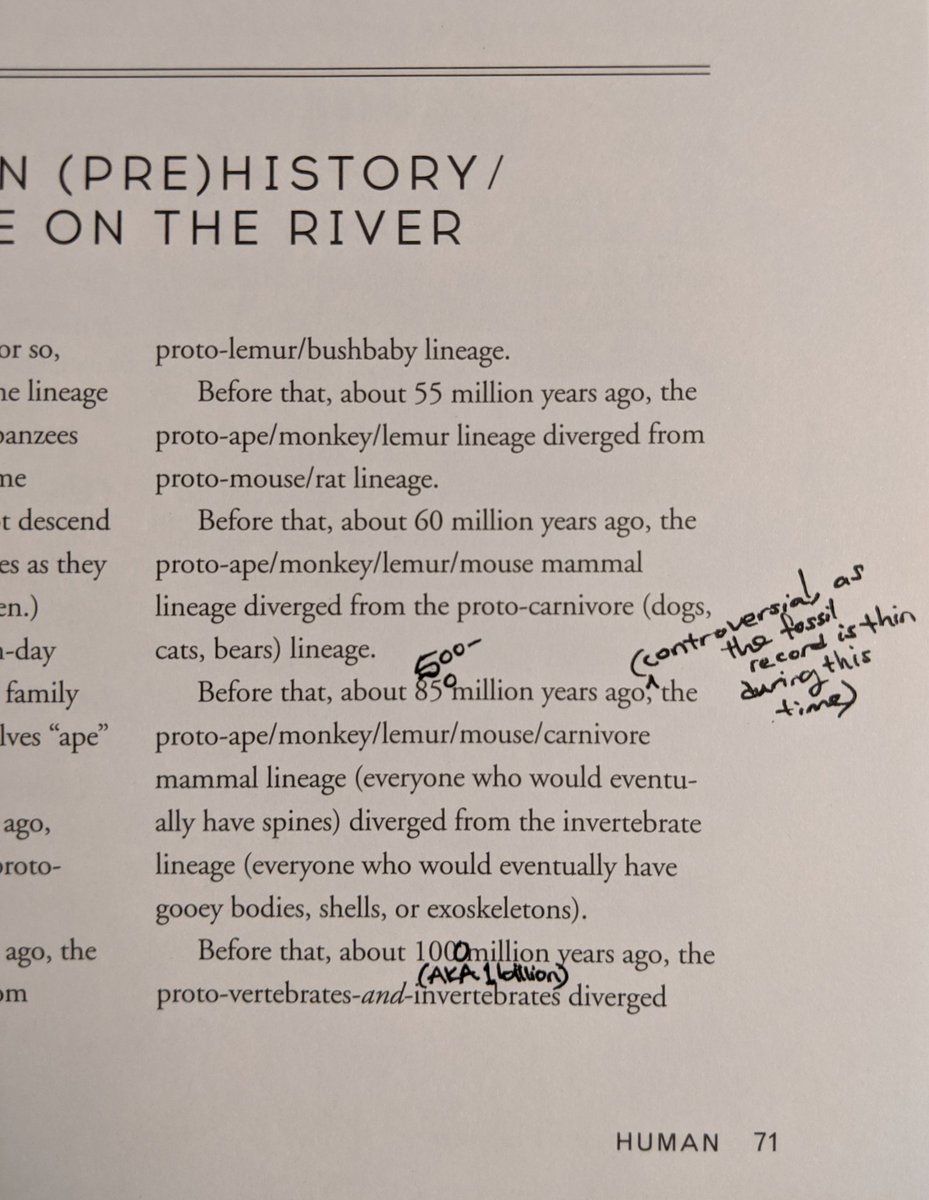 N (PRE)HISTORY/
E ON THE RIVER
or so,
lineage
panzees
me
t descend
es as they
en.)
-day
family
lves “ape”
ago,
proto-
ago, the
om
proto-lemur/bushbaby lineage.
Before that, about 55 million years ago, the
proto-ape/monkey/lemur lineage diverged from
proto-mouse/rat lineage.
Before that, about 60 million years ago, the
proto-ape/monkey/lemur/mouse mammal
lineage diverged from the proto-carnivore (dogs,
cats, bears) lineage.
500-
Before that, about 850 million years ago, the
(controversial, as
the fossil
record is thin
during this
time)
proto-ape/monkey/lemur/mouse/carnivore
mammal lineage (everyone who would eventu-
ally have spines) diverged from the invertebrate
lineage (everyone who would eventually have
gooey bodies, shells, or exoskeletons).
Before that, about 1000 million years ago, the
(AKA 1 billion)
proto-vertebrates-and-invertebrates diverged
HUMAN 71